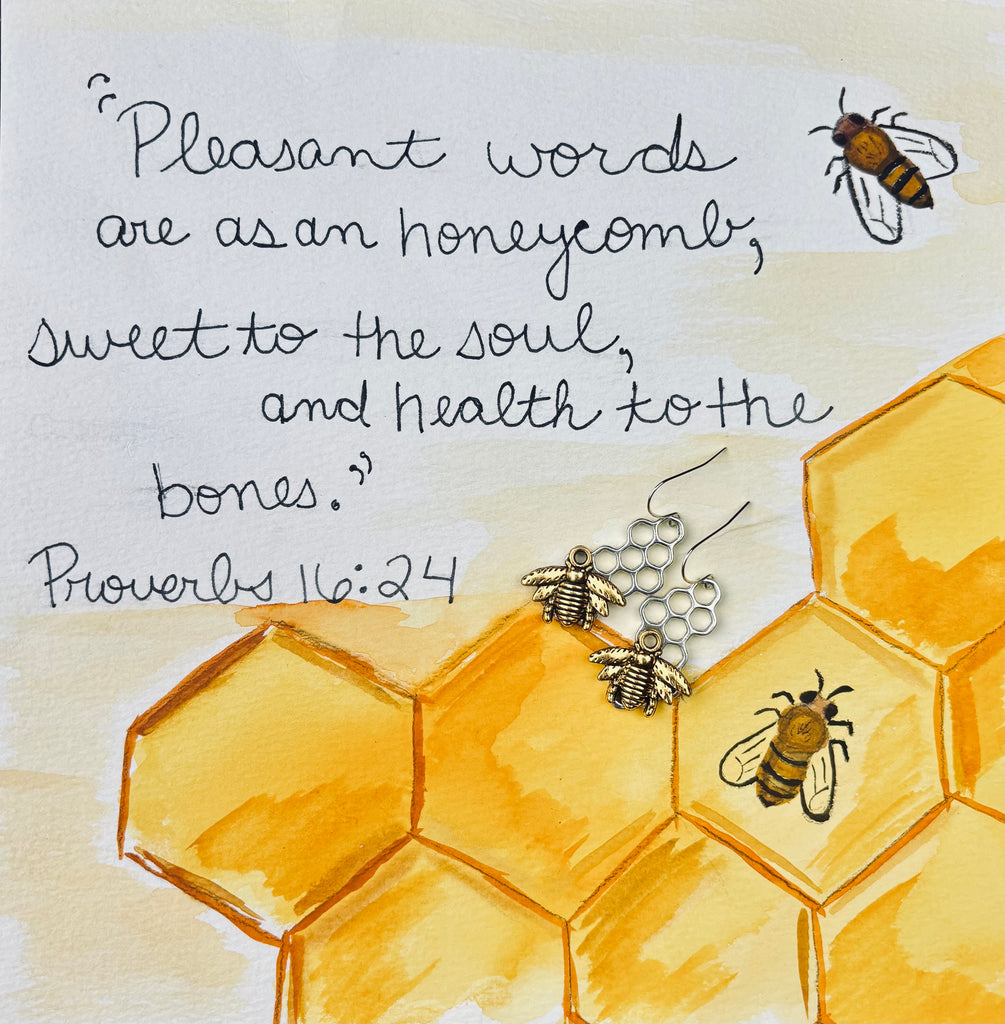 "Pleasant words
are as an honeycomb,
sweet to the soul,
and health to the
bones."
Proverbs 16:24